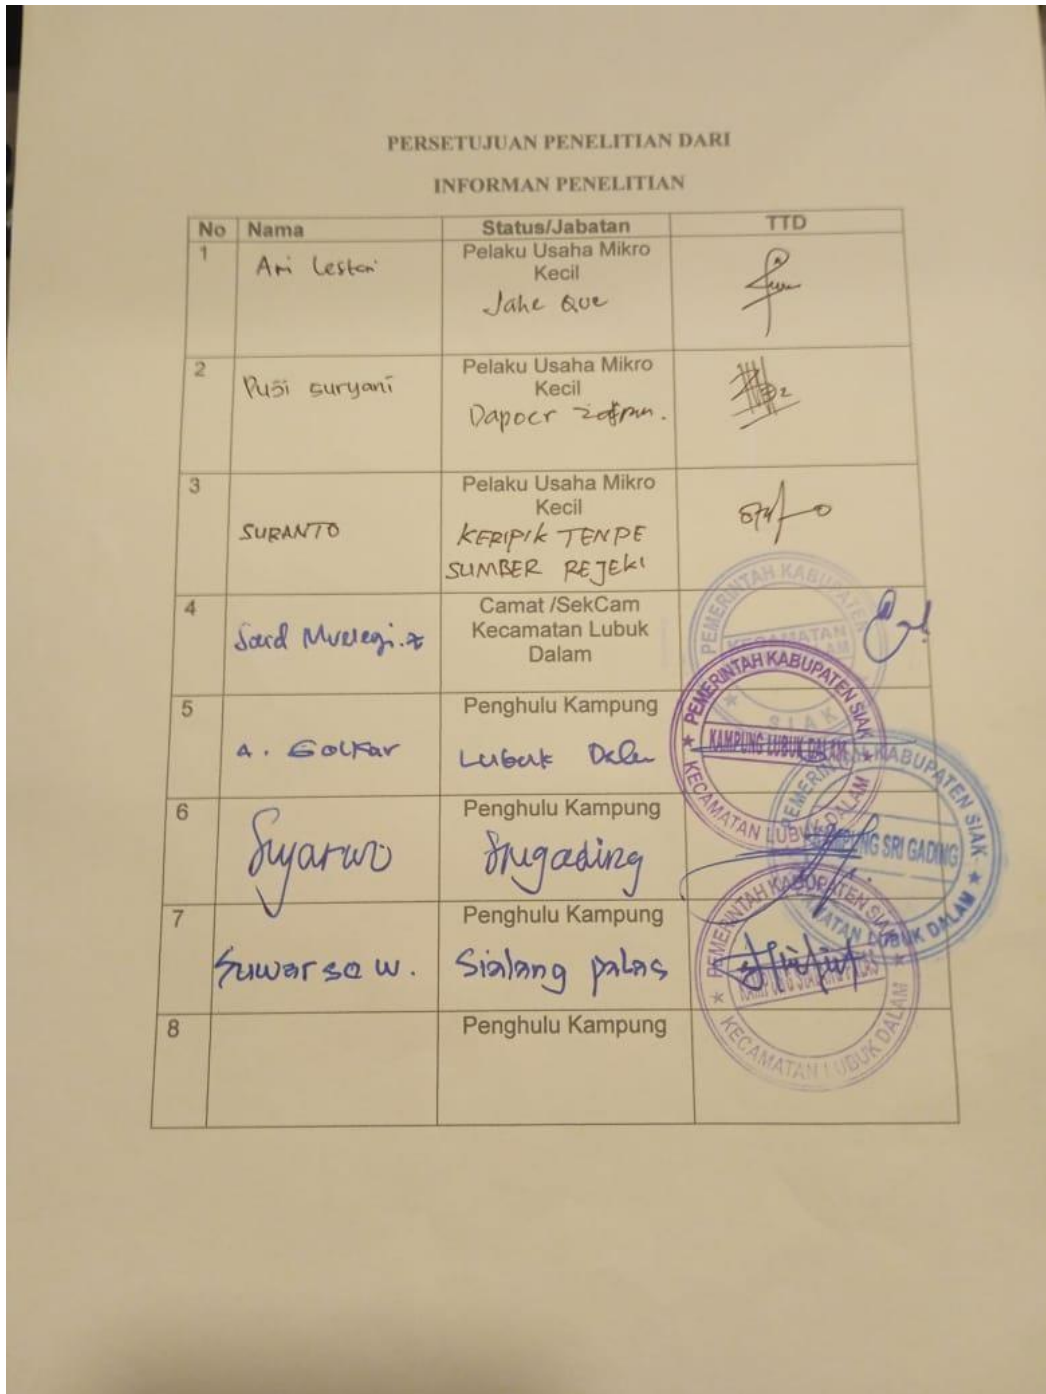 PERSETUJUAN PENELITIAN DARI
INFORMAN PENELITIAN
No Nama Status/Jabatan TTD
1 Ari Lestari Pelaku Usaha Mikro
Kecil
Jahe Que
2 Pusi suryani Pelaku Usaha Mikro
Kecil
Dapoer
3 SURANTO Pelaku Usaha Mikro
Kecil
KERIPIK TENPE
SUMBER REJEKI
4 Said Camat /SekCam
Kecamatan Lubuk
Dalam
PEMERINTAH KABUPATEN
KECAMATAN
SIAK
5 A. Golkar Penghulu Kampung
Lubuk Dalam
PEMERINTAH KABUPATEN SIAK
KAMPUNG LUBUK DALAM
KECAMATAN LUBUK DALAM
6 Penghulu Kampung
Srigading
PEMERINTAH KABUPATEN SIAK
KAMPUNG SRI GADING
KECAMATAN LUBUK DALAM
7 Suwarso W. Penghulu Kampung
Sialang palas
PEMERINTAH KABUPATEN SIAK
KAMPUNG SIALANG PALAS
KECAMATAN LUBUK DALAM
8 Penghulu Kampung